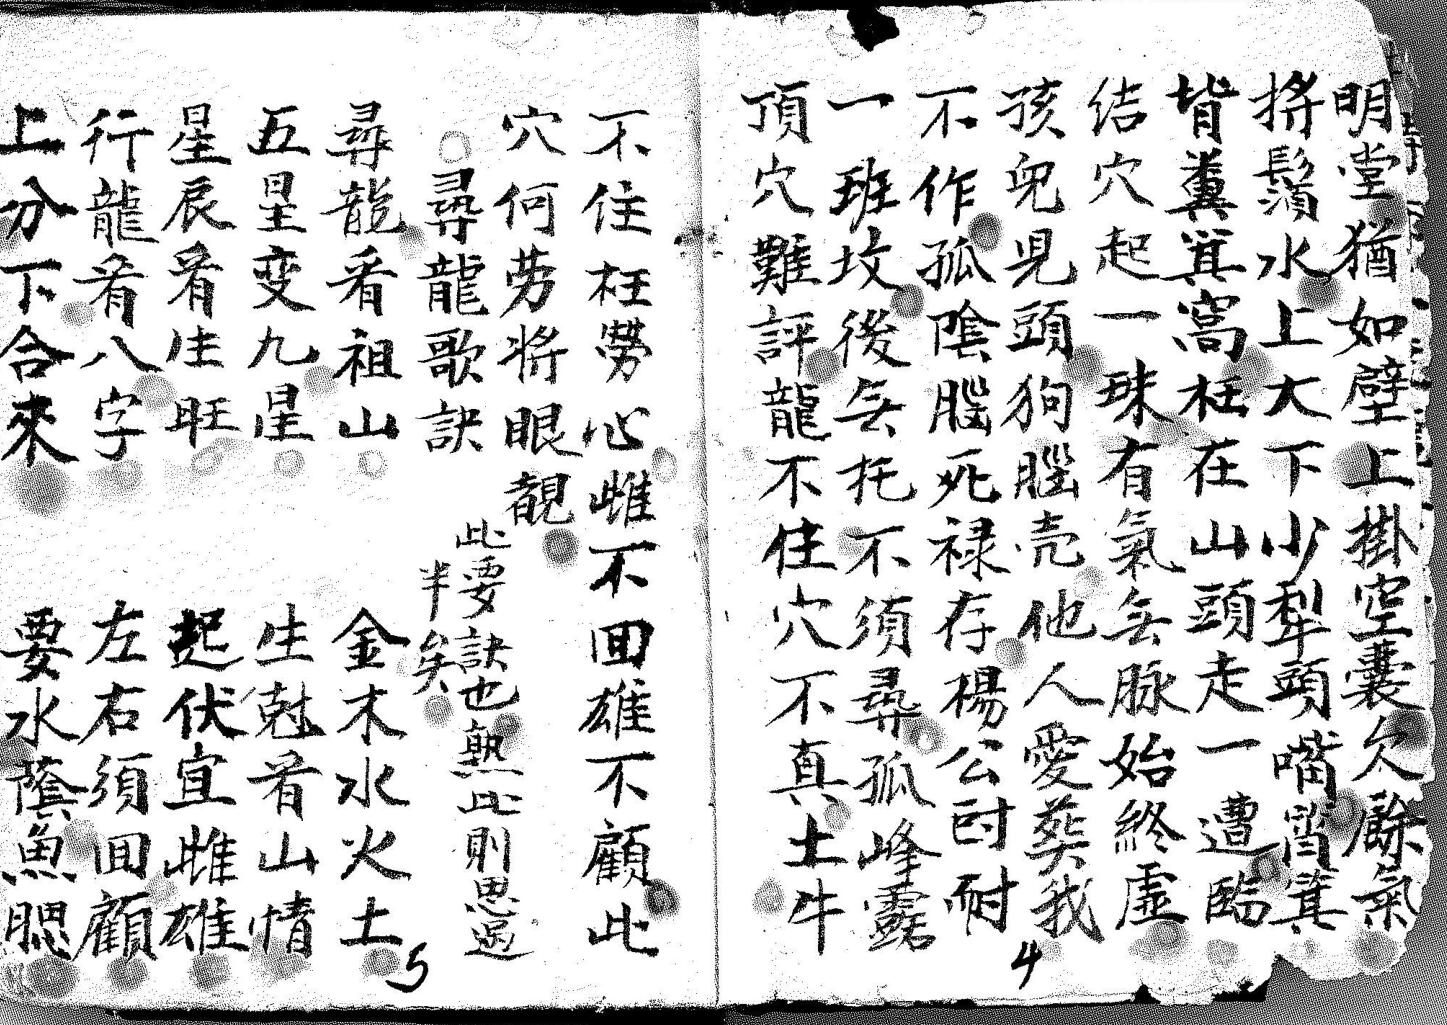 明堂猶如壁上掛空囊欠餘氣
將鬚水上大下少犁頭嘴
背糞箕窩枉在山頭走一遭臨
结穴起一珠有氣无脉始終虛
孩兒見頭狗腦壳他人愛葬我
不作孤陰腦死禄存楊公
一班坟後无托不須尋孤峰露
頂穴難評龍不住穴不真土牛
4
不住枉勞心雌不回雄不顧此
穴何劳将眼觀
尋龍歌訣
此要訣也熟此則思過
半矣
尋龍看祖山 金木水火土
五星变九星 生尅看山情
星辰看生旺 起伏宜雌雄
行龍看八字 左右須回顧
上分下合來 要水蔭魚腮
5